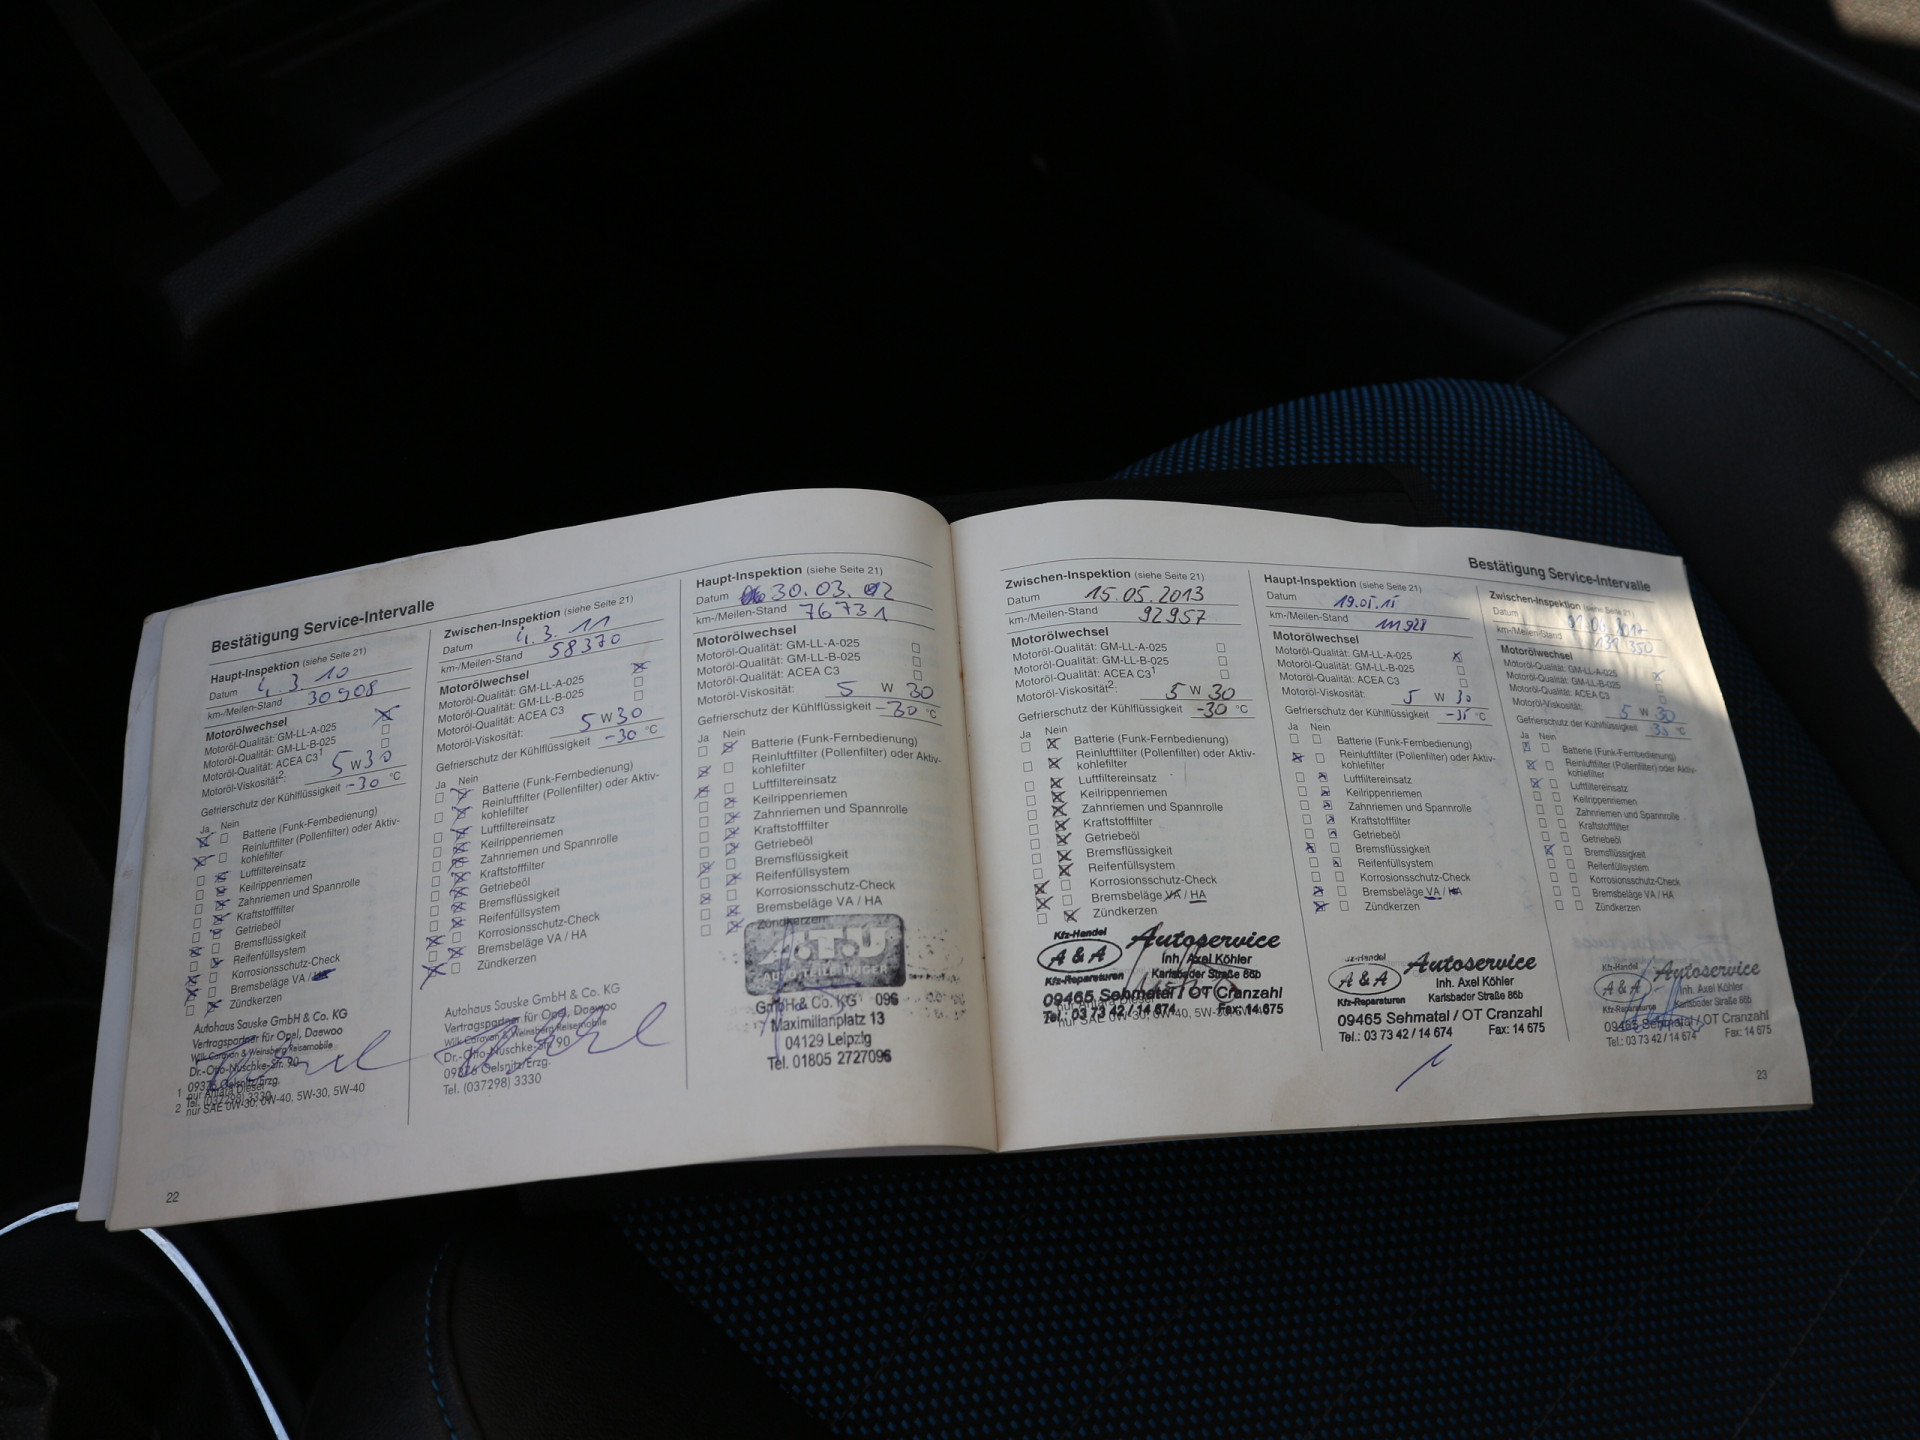 Bestätigung Service-Intervalle
Haupt-Inspektion (siehe Seite 21)
Datum 4. 3. 10
km-/Meilen-Stand 30908
Motorölwechsel
Motoröl-Qualität: GM-LL-A-025
Motoröl-Qualität: GM-LL-B-025
Motoröl-Qualität: ACEA C3¹
Motoröl-Viskosität²: 5 W 30
Gefrierschutz der Kühlflüssigkeit -30 °C
Ja Nein
Batterie (Funk-Fernbedienung)
Reinluftfilter (Pollenfilter) oder Aktiv-
kohlefilter
Luftfiltereinsatz
Keilrippenriemen
Zahnriemen und Spannrolle
Kraftstofffilter
Getriebeöl
Bremsflüssigkeit
Reifenfüllsystem
Korrosionsschutz-Check
Bremsbeläge VA /
Zündkerzen
Autohaus Sauske GmbH & Co. KG
Vertragspartner für Opel, Daewoo
Wilk Caravan & Weinsberg Reisemobile
Dr.-Otto-Nuschke-Str. 90
09376 Oelsnitz/Erzg.
Tel. (037298) 3330
1 nur Antara Diesel
2 nur SAE 0W-30, 0W-40, 5W-30, 5W-40
22
Zwischen-Inspektion (siehe Seite 21)
Datum 4. 3. 11
km-/Meilen-Stand 58370
Motorölwechsel
Motoröl-Qualität: GM-LL-A-025
Motoröl-Qualität: GM-LL-B-025
Motoröl-Qualität: ACEA C3
Motoröl-Viskosität: 5 W 30
Gefrierschutz der Kühlflüssigkeit -30 °C
Ja Nein
Batterie (Funk-Fernbedienung)
Reinluftfilter (Pollenfilter) oder Aktiv-
kohlefilter
Luftfiltereinsatz
Keilrippenriemen
Zahnriemen und Spannrolle
Kraftstofffilter
Getriebeöl
Bremsflüssigkeit
Reifenfüllsystem
Korrosionsschutz-Check
Bremsbeläge VA / HA
Zündkerzen
Autohaus Sauske GmbH & Co. KG
Vertragspartner für Opel, Daewoo
Wilk Caravan & Weinsberg Reisemobile
Dr.-Otto-Nuschke-Str. 90
09376 Oelsnitz/Erzg.
Tel. (037298) 3330
Haupt-Inspektion (siehe Seite 21)
Datum 30.03.12
km-/Meilen-Stand 76731
Motorölwechsel
Motoröl-Qualität: GM-LL-A-025
Motoröl-Qualität: GM-LL-B-025
Motoröl-Qualität: ACEA C3
Motoröl-Viskosität: 5 W 30
Gefrierschutz der Kühlflüssigkeit -30 °C
Ja Nein
Batterie (Funk-Fernbedienung)
Reinluftfilter (Pollenfilter) oder Aktiv-
kohlefilter
Luftfiltereinsatz
Keilrippenriemen
Zahnriemen und Spannrolle
Kraftstofffilter
Getriebeöl
Bremsflüssigkeit
Reifenfüllsystem
Korrosionsschutz-Check
Bremsbeläge VA / HA
Zündkerzen
A.T.U
AUTO TEILE UNGER
GmbH & Co. KG 096
Maximilianplatz 13
04129 Leipzig
Tel. 01805 2727096
Bestätigung Service-Intervalle
Zwischen-Inspektion (siehe Seite 21)
Datum 15.05.2013
km-/Meilen-Stand 92957
Motorölwechsel
Motoröl-Qualität: GM-LL-A-025
Motoröl-Qualität: GM-LL-B-025
Motoröl-Qualität: ACEA C3¹
Motoröl-Viskosität²: 5 W 30
Gefrierschutz der Kühlflüssigkeit -30 °C
Ja Nein
Batterie (Funk-Fernbedienung)
Reinluftfilter (Pollenfilter) oder Aktiv-
kohlefilter
Luftfiltereinsatz
Keilrippenriemen
Zahnriemen und Spannrolle
Kraftstofffilter
Getriebeöl
Bremsflüssigkeit
Reifenfüllsystem
Korrosionsschutz-Check
Bremsbeläge VA / HA
Zündkerzen
Kfz-Handel
A & A Autoservice
Kfz-Reparaturen
Inh. Axel Köhler
Karlsbader Straße 86b
09465 Sehmatal / OT Cranzahl
Tel.: 03 73 42 / 14 674 Fax: 14 675
nur Antara Diesel
nur SAE 0W-30, 0W-40, 5W-30
Haupt-Inspektion (siehe Seite 21)
Datum 19.05.15
km-/Meilen-Stand 111928
Motorölwechsel
Motoröl-Qualität: GM-LL-A-025
Motoröl-Qualität: GM-LL-B-025
Motoröl-Qualität: ACEA C3
Motoröl-Viskosität: 5 W 30
Gefrierschutz der Kühlflüssigkeit -35 °C
Ja Nein
Batterie (Funk-Fernbedienung)
Reinluftfilter (Pollenfilter) oder Aktiv-
kohlefilter
Luftfiltereinsatz
Keilrippenriemen
Zahnriemen und Spannrolle
Kraftstofffilter
Getriebeöl
Bremsflüssigkeit
Reifenfüllsystem
Korrosionsschutz-Check
Bremsbeläge VA / HA
Zündkerzen
Kfz-Handel
A & A Autoservice
Kfz-Reparaturen
Inh. Axel Köhler
Karlsbader Straße 86b
09465 Sehmatal / OT Cranzahl
Tel.: 03 73 42 / 14 674 Fax: 14 675
Zwischen-Inspektion (siehe Seite 21)
Datum
km-/Meilen-Stand
Motorölwechsel
Motoröl-Qualität: GM-LL-A-025
Motoröl-Qualität: GM-LL-B-025
Motoröl-Qualität: ACEA C3
Motoröl-Viskosität: 5 W 30
Gefrierschutz der Kühlflüssigkeit °C
Ja Nein
Batterie (Funk-Fernbedienung)
Reinluftfilter (Pollenfilter) oder Aktiv-
kohlefilter
Luftfiltereinsatz
Keilrippenriemen
Zahnriemen und Spannrolle
Kraftstofffilter
Getriebeöl
Bremsflüssigkeit
Reifenfüllsystem
Korrosionsschutz-Check
Bremsbeläge VA / HA
Zündkerzen
Kfz-Handel
A & A Autoservice
Kfz-Reparaturen
Inh. Axel Köhler
Karlsbader Straße 86b
09465 Sehmatal / OT Cranzahl
Tel.: 03 73 42 / 14 674 Fax: 14 675
23